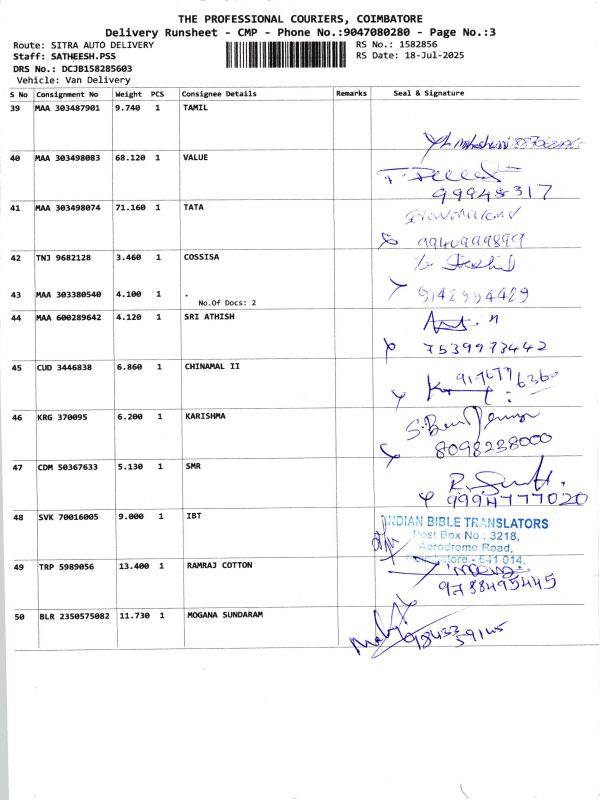 THE PROFESSIONAL COURIERS, COIMBATORE
Delivery Runsheet - CMP - Phone No.:9047080280 - Page No.:3
Route: SITRA AUTO DELIVERY RS No.: 1582856
Staff: SATHEESH.PSS RS Date: 18-Jul-2025
DRS No.: DCJB158285603
Vehicle: Van Delivery
S No Consignment No Weight PCS Consignee Details Remarks Seal & Signature
39 MAA 303487901 9.740 1 TAMIL
40 MAA 303498083 68.120 1 VALUE
99945317
41 MAA 303498074 71.160 1 TATA
9940999899
42 TNJ 9682128 3.460 1 COSSISA
43 MAA 303380540 4.100 1 .
No.Of Docs: 2
9142994429
44 MAA 600289642 4.120 1 SRI ATHISH
7539973442
45 CUD 3446838 6.860 1 CHINAMAL II
46 KRG 370095 6.200 1 KARISHMA
8098238000
47 CDM 50367633 5.130 1 SMR
9994777020
48 SVK 70016005 9.000 1 IBT
INDIAN BIBLE TRANSLATORS
Post Box No : 3218,
Aerodrome Road,
Coimbatore - 641 014.
49 TRP 5989056 13.400 1 RAMRAJ COTTON
9788495445
50 BLR 2350575082 11.730 1 MOGANA SUNDARAM
98433 59145